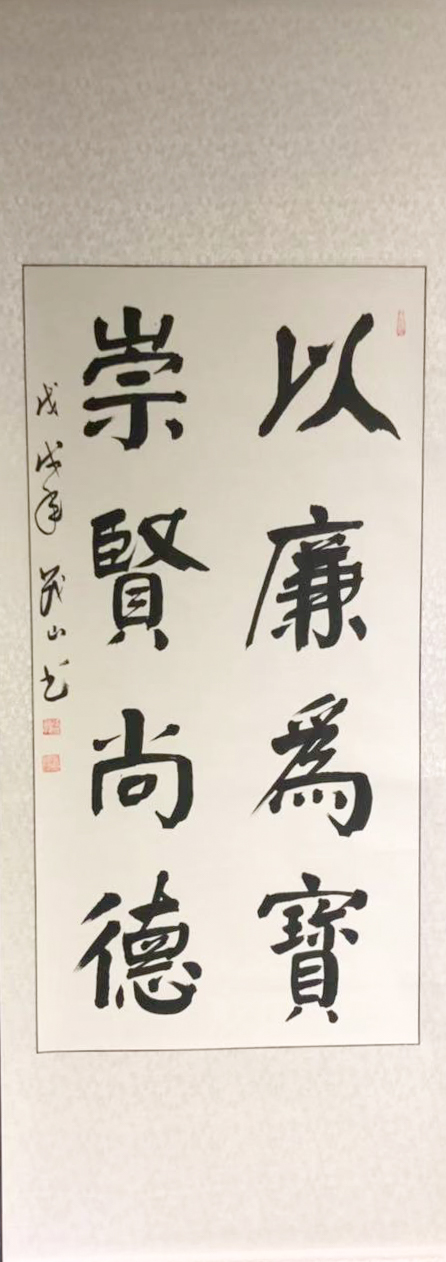 以廉爲寶
崇賢尚德
戊戌年 茂山书